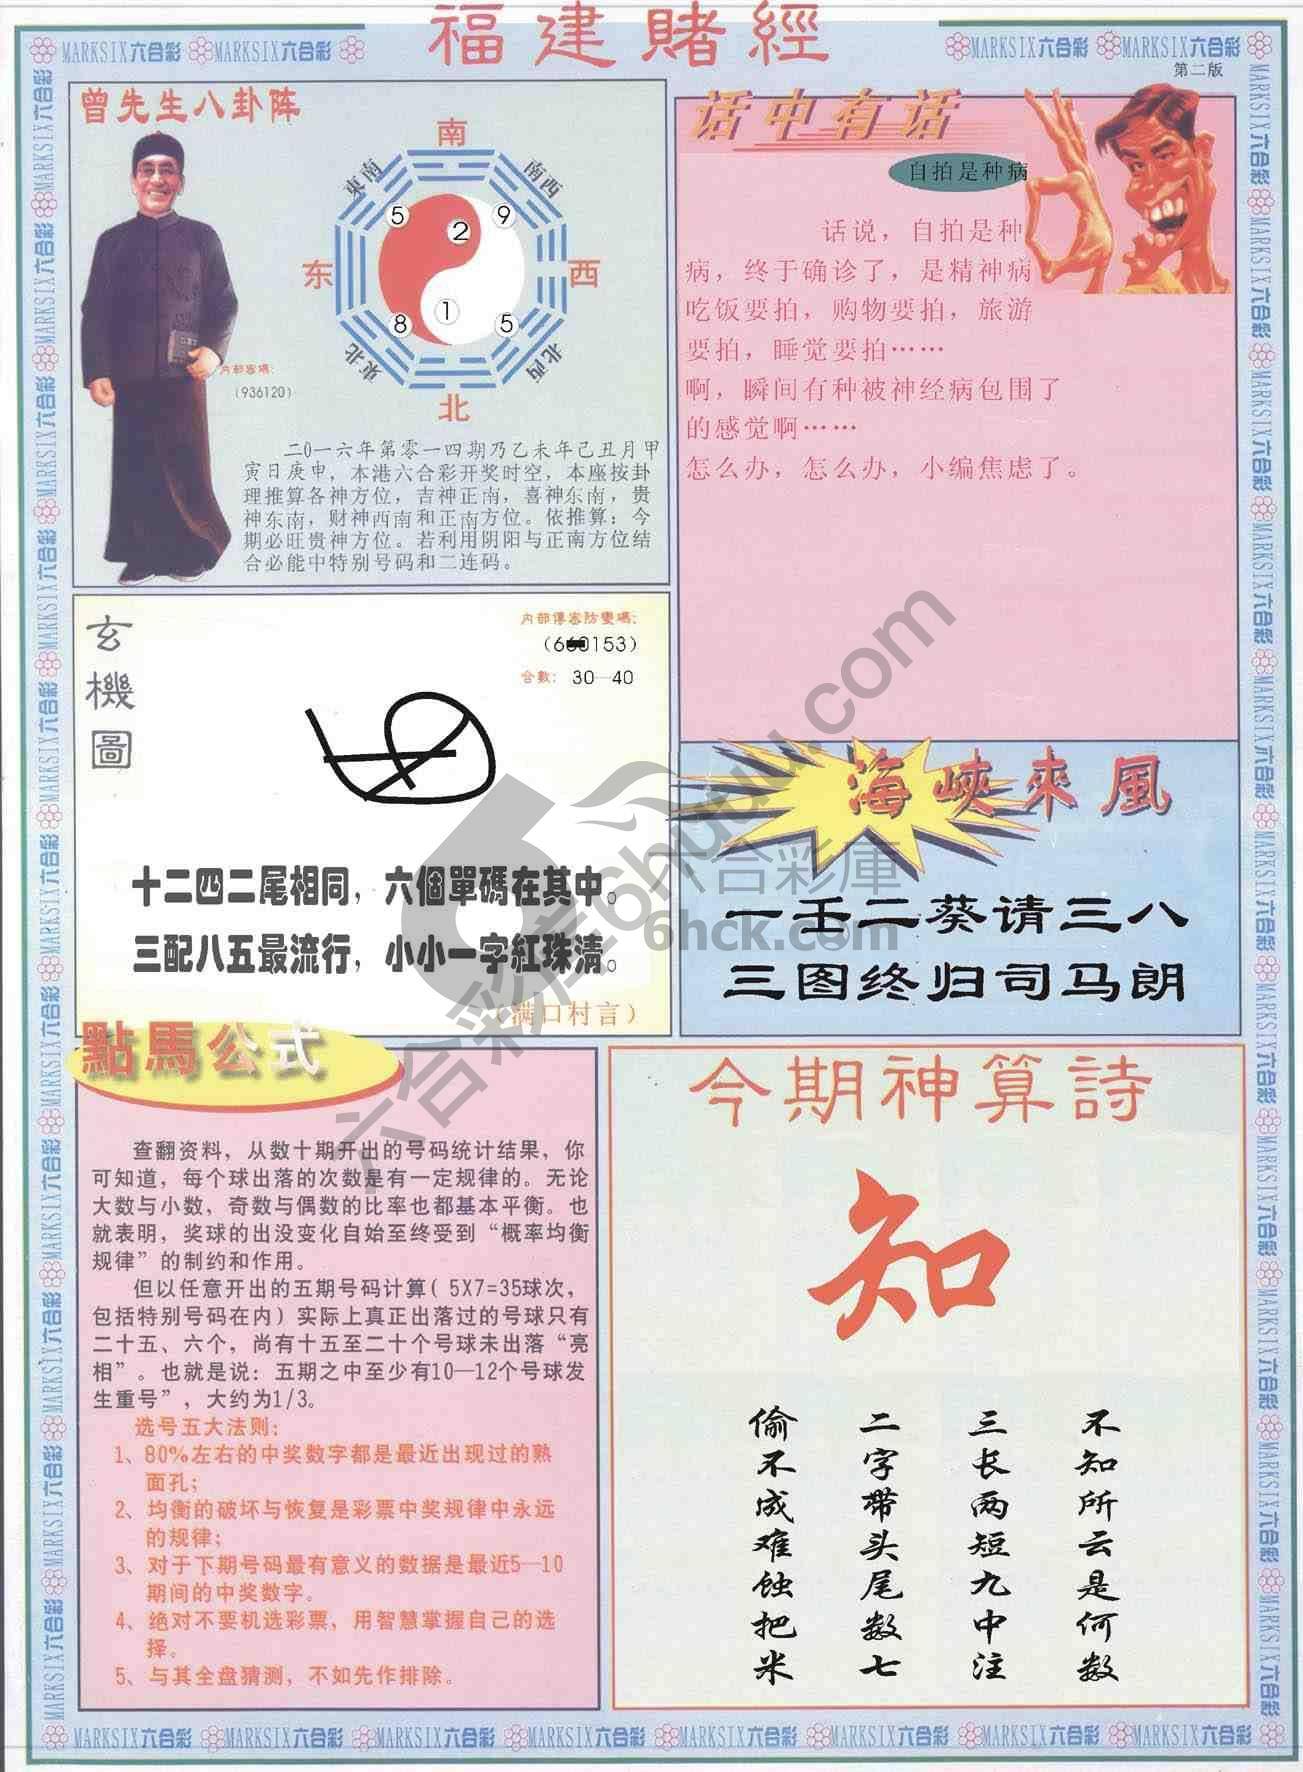 福建賭經
MARKSIX六合彩 MARKSIX六合彩
MARKSIX六合彩 MARKSIX六合彩
第二版
曾先生八卦阵
南
東南
南西
5
2
9
东
西
8
1
5
東北
北西
北
内部密碼：
(936120)
二0一六年第零一四期乃乙未年己丑月甲
寅日庚申，本港六合彩开奖时空，本座按卦
理推算各神方位，吉神正南，喜神东南，贵
神东南，财神西南和正南方位。依推算：今
期必旺贵神方位。若利用阴阳与正南方位结
合必能中特别号码和二连码。
话中有话
自拍是种病
话说，自拍是种
病，终于确诊了，是精神病
吃饭要拍，购物要拍，旅游
要拍，睡觉要拍……
啊，瞬间有种被神经病包围了
的感觉啊……
怎么办，怎么办，小编焦虑了。
玄機圖
内部傳密防變碼：
0153)
合數： 30—40
十二四二尾相同，六個單碼在其中。
三配八五最流行，小小一字紅珠清。
(满口村言)
海峽來風
一壬二葵请三八
三图终归司马朗
六合彩庫
6hck.com
點馬公式
查翻资料，从数十期开出的号码统计结果，你
可知道，每个球出落的次数是有一定规律的。无论
大数与小数，奇数与偶数的比率也都基本平衡。也
就表明，奖球的出没变化自始至终受到“概率均衡
规律”的制约和作用。
但以任意开出的五期号码计算( 5X7=35球次，
包括特别号码在内) 实际上真正出落过的号球只有
二十五、六个，尚有十五至二十个号球未出落“亮
相”。也就是说：五期之中至少有10—12个号球发
生重号”，大约为1/3。
选号五大法则：
1、80%左右的中奖数字都是最近出现过的熟
面孔；
2、均衡的破坏与恢复是彩票中奖规律中永远
的规律；
3、对于下期号码最有意义的数据是最近5—10
期间的中奖数字。
4、绝对不要机选彩票，用智慧掌握自己的选
择。
5、与其全盘猜测，不如先作排除。
今期神算詩
知
不知所云是何数
三长两短九中注
二字带头尾数七
偷不成难蚀把米
MARKSIX六合彩 MARKSIX六合彩 MARKSIX六合彩 MARKSIX六合彩 MARKSIX六合彩 MARKSIX六合彩 MARKSIX六合彩 MARKSIX六合彩